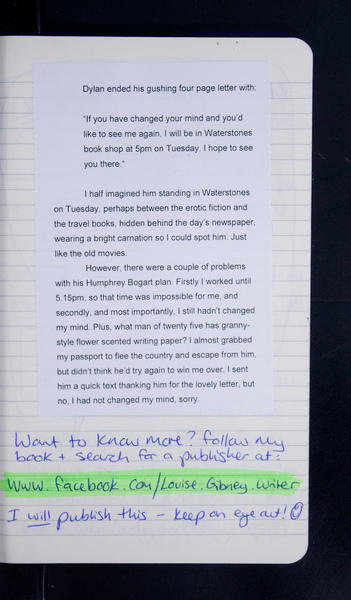 Dylan ended his gushing four page letter with:
"If you have changed your mind and you'd
like to see me again, I will be in Waterstones
book shop at 5pm on Tuesday. I hope to see
you there."
I half imagined him standing in Waterstones
on Tuesday, perhaps between the erotic fiction and
the travel books, hidden behind the day's newspaper,
wearing a bright carnation so I could spot him. Just
like the old movies.
However, there were a couple of problems
with his Humphrey Bogart plan. Firstly I worked until
5.15pm, so that time was impossible for me, and
secondly, and most importantly, I still hadn't changed
my mind. Plus, what man of twenty five has granny-
style flower scented writing paper? I almost grabbed
my passport to flee the country and escape from him,
but didn't think he'd try again to win me over. I sent
him a quick text thanking him for the lovely letter, but
no, I had not changed my mind, sorry.
Want to know more? Follow my
book + search for a publisher at:
www.facebook.com/Louise.Gibney.Writer
I will publish this - keep an eye out!